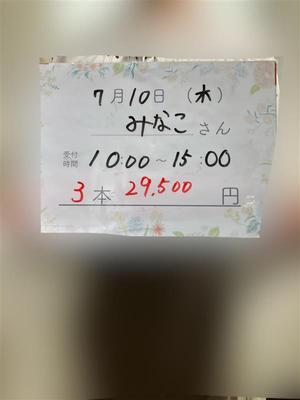 7月10日 (木)
みなこさん
受付時間 10:00~15:00
3本 29,500円